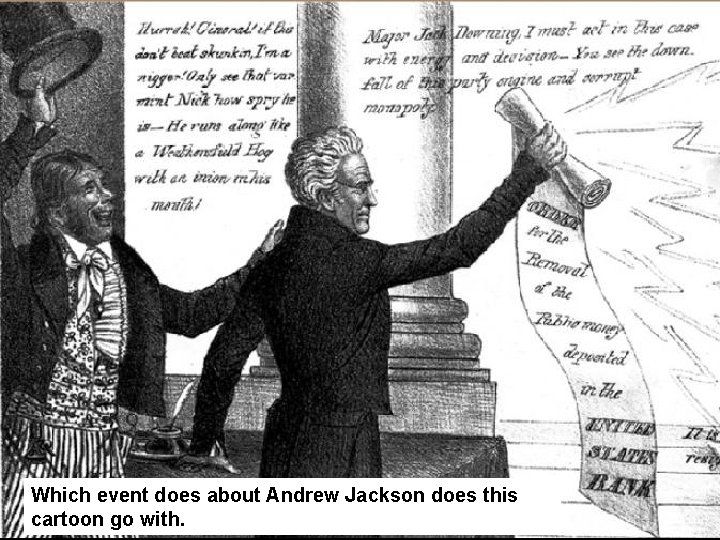 Hurrah! General! if this
don't beat skunkin, I'm a
nigger! Only see that var
mint Nick how spry he
is — He runs along like
a Weathersfield Hog
with an inion in his
mouth!
Major Jack Downing, I must act in this case
with energy and decision — You see the down
fall of this party engine and corrupt
monopoly
ORDER
for the
Removal
of the
Public money
deposited
in the
UNITED
STATES
BANK
It is
resig
Which event does about Andrew Jackson does this
cartoon go with.